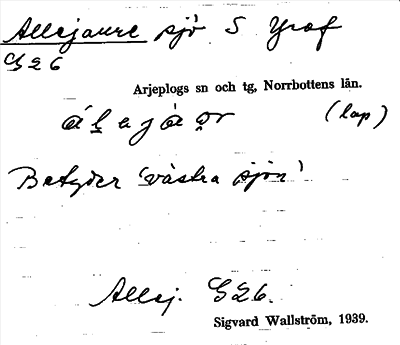 Allejaure sjö S Graf
G26
Arjeplogs sn och tg, Norrbottens län.
(lap)
Betyder 'västra sjön'
Allej. G26.
Sigvard Wallström, 1939.